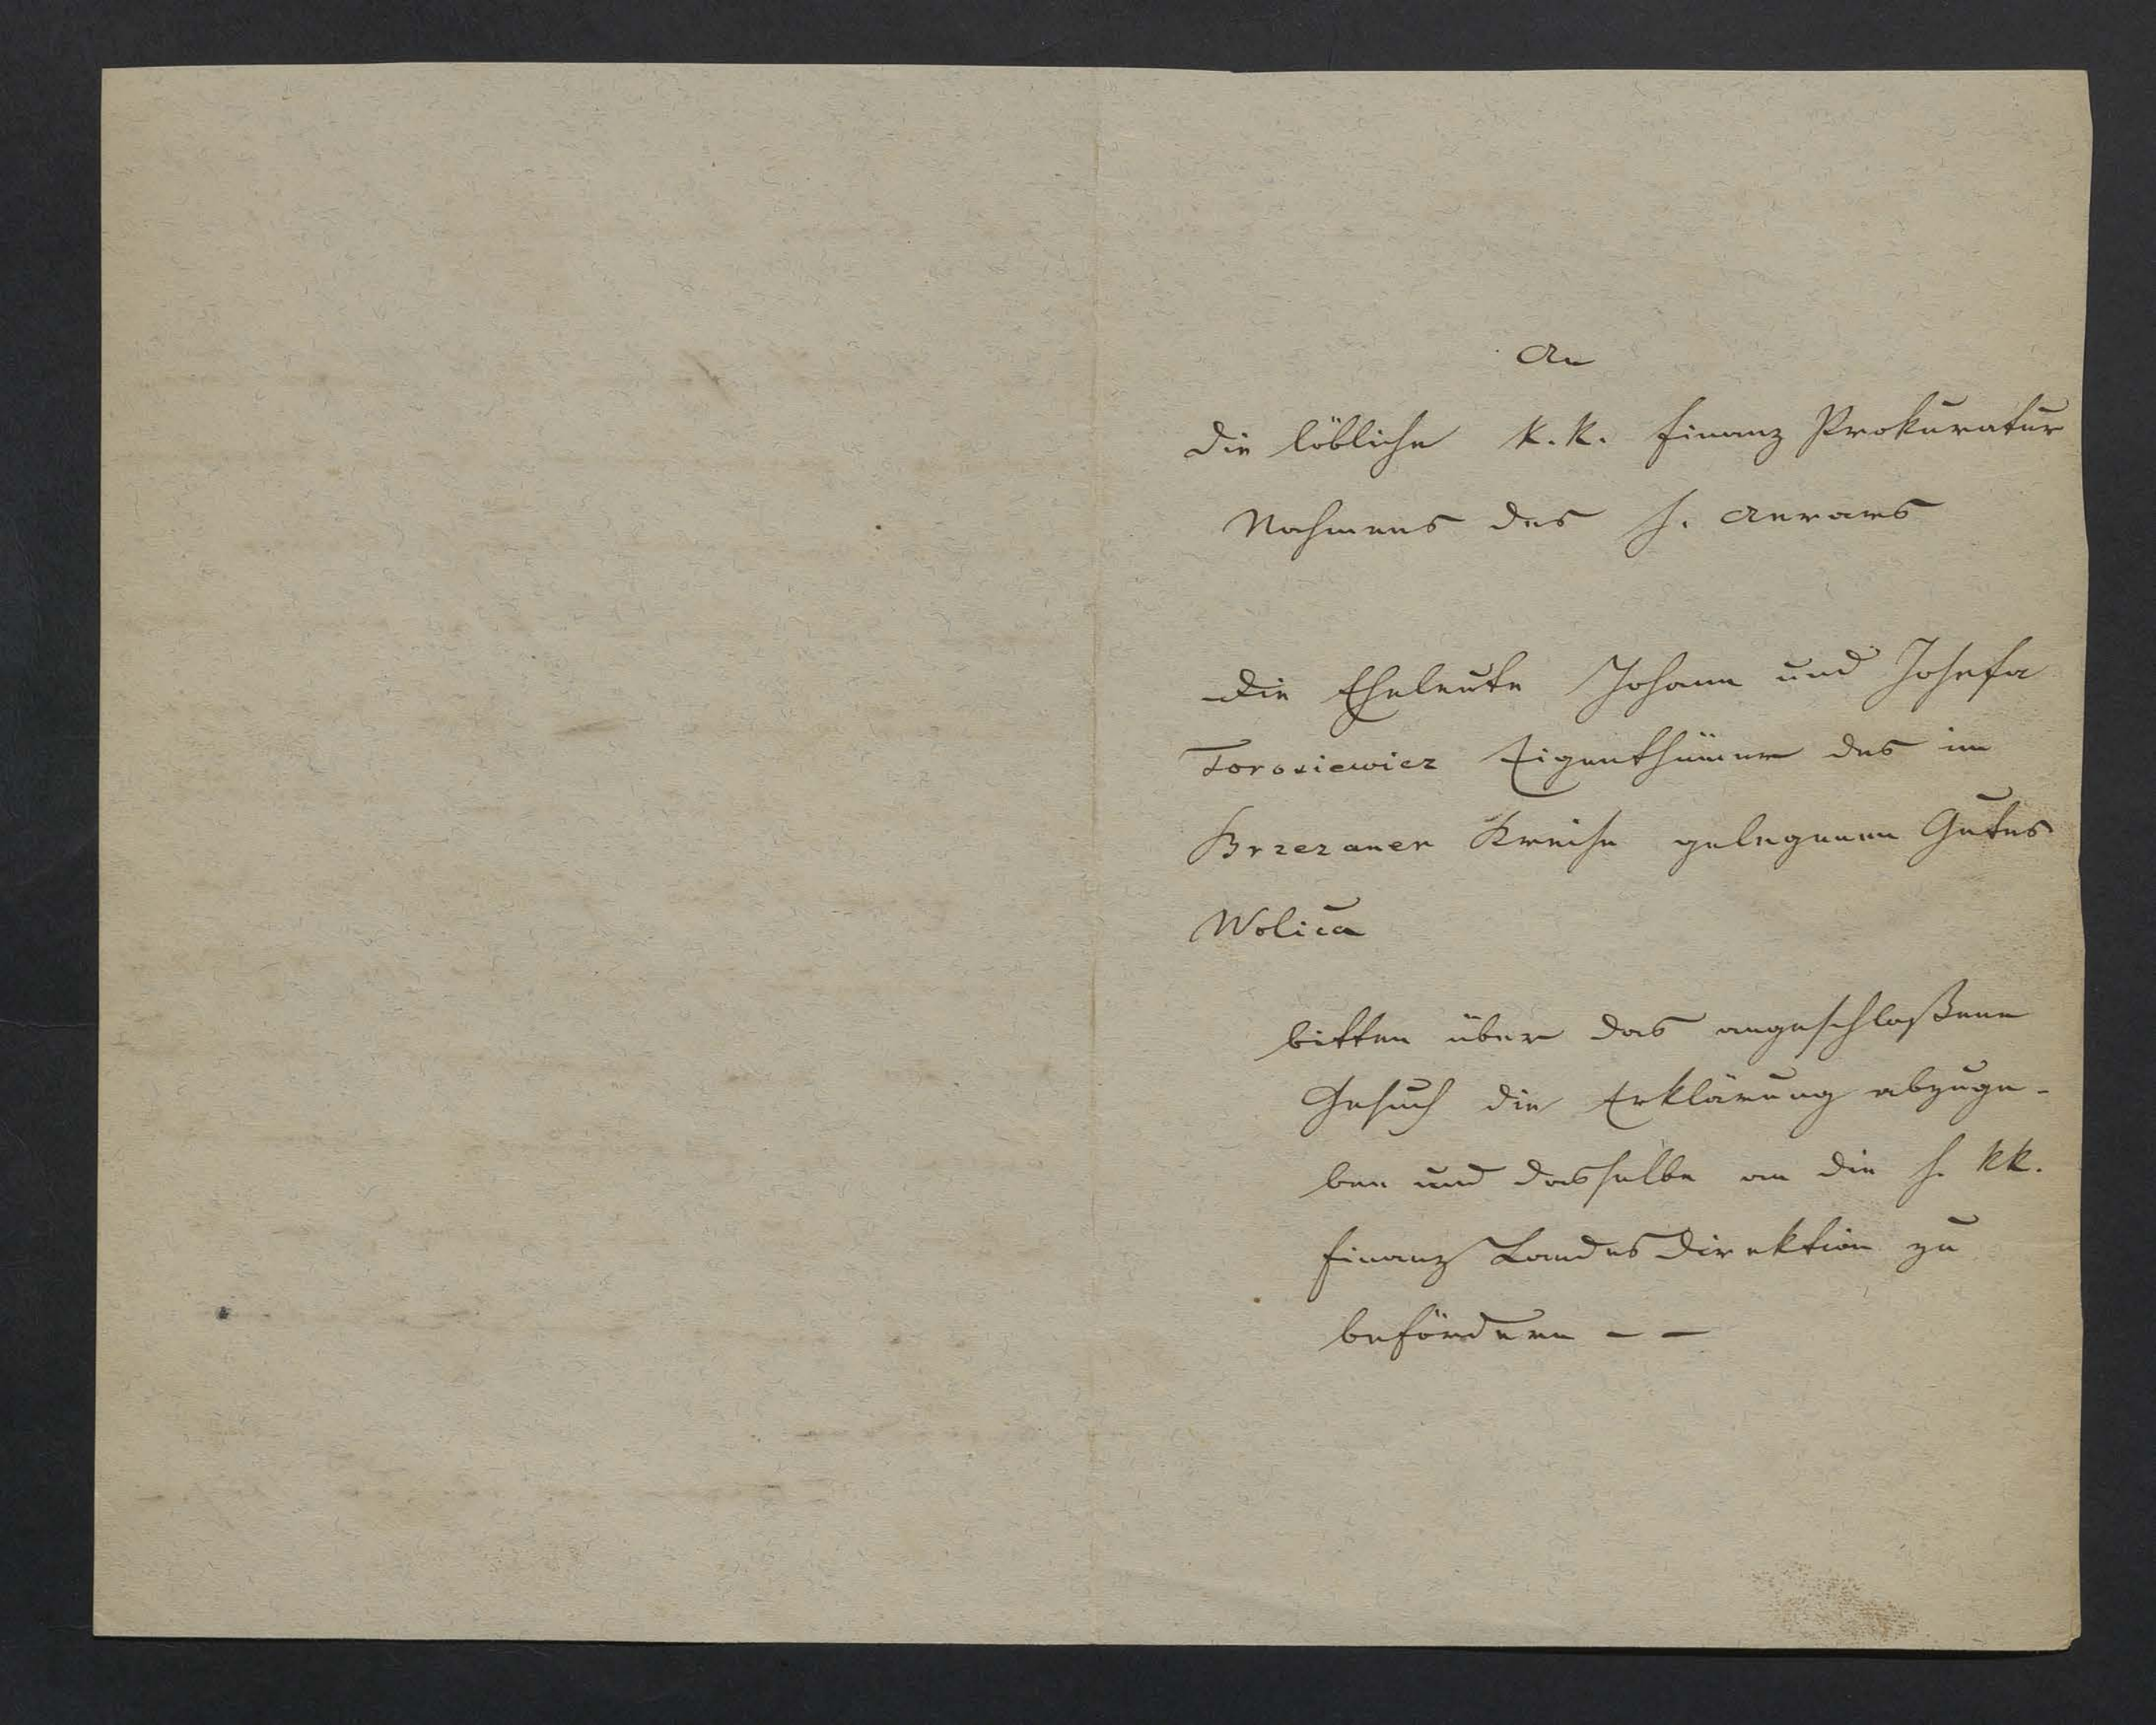 An
die löbliche k. k. Finanz Prokuratur
Nahmens des h. Aerars
Die Eheleute Johann und Josefa
Torosiewicz Eigenthümer des im
Brzezaner Kreise gelegenen Gutes
Wolica
bitten über das angeschloßene
Gesuch die Erklärung abzuge-
ben und dasselbe an die h. kk.
Finanz Landes Direktion zu
befördern – –